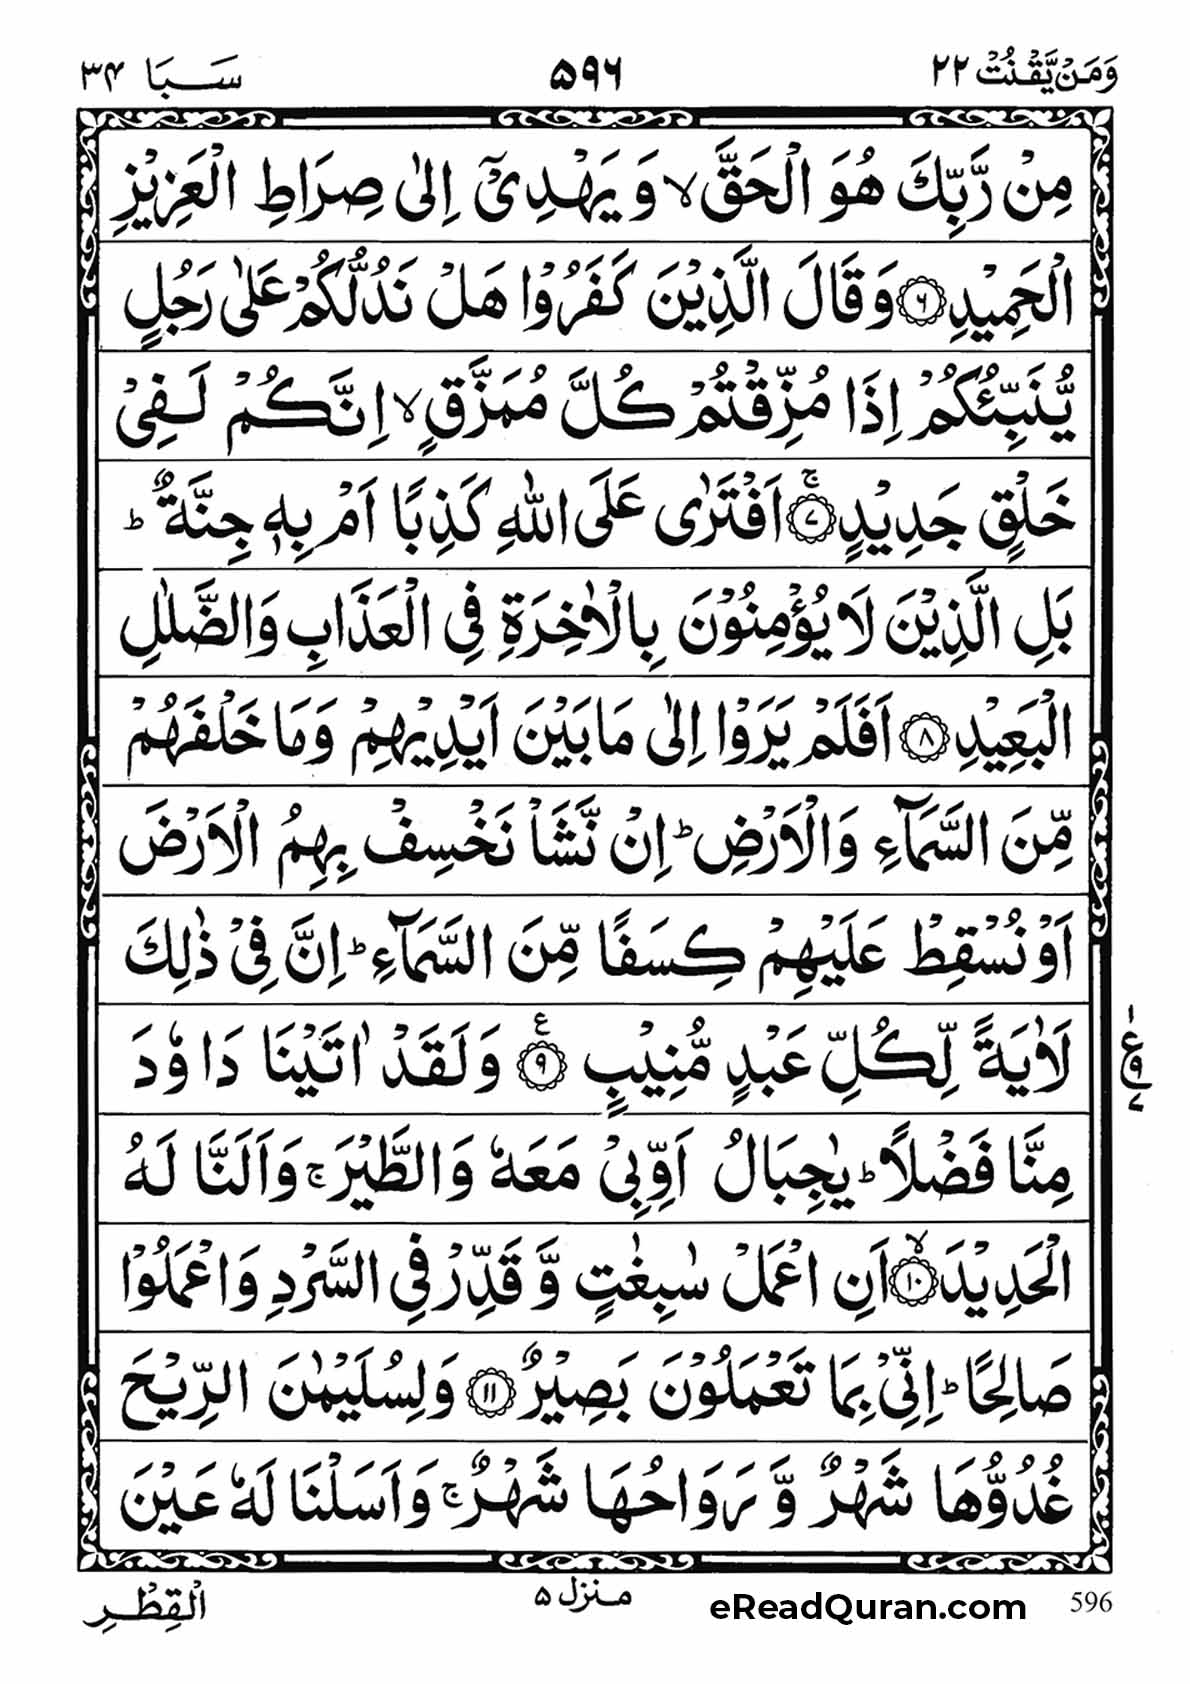 وَمَنْ يَّقْنُتْ ٢٢
٥٩٦
سَبَا ٣٤
مِنْ رَّبِّكَ هُوَ الْحَقَّ ۙ وَ يَهْدِىْۤ اِلٰى صِرَاطِ الْعَزِيْزِ
الْحَمِيْدِ ۝٦ وَقَالَ الَّذِيْنَ كَفَرُوْا هَلْ نَدُلُّكُمْ عَلٰى رَجُلٍ
يُّنَبِّئُكُمْ اِذَا مُزِّقْتُمْ كُلَّ مُمَزَّقٍ ۙ اِنَّكُمْ لَفِىْ
خَلْقٍ جَدِيْدٍ ۝٧ۚ اَفْتَرٰى عَلَى اللّٰهِ كَذِبًا اَمْ بِهٖ جِنَّةٌ ؕ
بَلِ الَّذِيْنَ لَا يُؤْمِنُوْنَ بِالْاٰخِرَةِ فِى الْعَذَابِ وَالضَّلٰلِ
الْبَعِيْدِ ۝٨ اَفَلَمْ يَرَوْا اِلٰى مَا بَيْنَ اَيْدِيْهِمْ وَمَا خَلْفَهُمْ
مِّنَ السَّمَآءِ وَالْاَرْضِ ؕ اِنْ نَّشَاْ نَخْسِفْ بِهِمُ الْاَرْضَ
اَوْ نُسْقِطْ عَلَيْهِمْ كِسَفًا مِّنَ السَّمَآءِ ؕ اِنَّ فِىْ ذٰلِكَ
لَاٰيَةً لِّكُلِّ عَبْدٍ مُّنِيْبٍ ۝٩ ع وَلَقَدْ اٰتَيْنَا دَاوٗدَ
مِنَّا فَضْلًا ؕ يٰجِبَالُ اَوِّبِىْ مَعَهٗ وَالطَّيْرَ ۚ وَاَلَنَّا لَهُ
الْحَدِيْدَ ۝١٠ۙ اَنِ اعْمَلْ سٰبِغٰتٍ وَّ قَدِّرْ فِى السَّرْدِ وَاعْمَلُوْا
صَالِحًا ؕ اِنِّىْ بِمَا تَعْمَلُوْنَ بَصِيْرٌ ۝١١ وَلِسُلَيْمٰنَ الرِّيْحَ
غُدُوُّهَا شَهْرٌ وَّ رَوَاحُهَا شَهْرٌ ۚ وَاَسَلْنَا لَهٗ عَيْنَ
ع ١ ٩ ٧
الْقِطْرِ
منزل ٥
eReadQuran.com
596